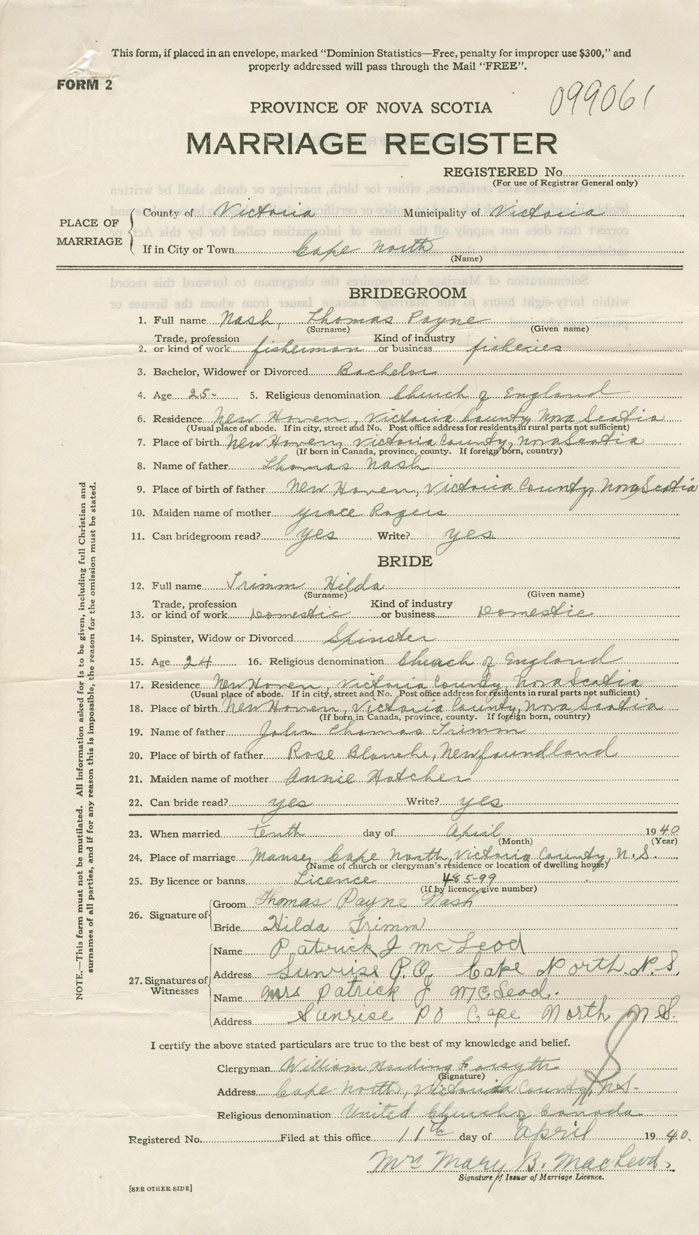 This form, if placed in an envelope, marked "Dominion Statistics—Free, penalty for improper use $300," and
properly addressed will pass through the Mail "FREE".
FORM 2
099061
PROVINCE OF NOVA SCOTIA
MARRIAGE REGISTER
REGISTERED No.
(For use of Registrar General only)
PLACE OF MARRIAGE
County of Victoria Municipality of Victoria
If in City or Town Cape North
(Name)
BRIDEGROOM
1. Full name Nash, Thomas Payne
(Surname) (Given name)
Trade, profession Kind of industry
2. or kind of work fisherman or business fisheries
3. Bachelor, Widower or Divorced Bachelor
4. Age 25- 5. Religious denomination Church of England
6. Residence New Haven, Victoria County, Nova Scotia
(Usual place of abode. If in city, street and No. Post office address for residents in rural parts not sufficient)
7. Place of birth New Haven, Victoria County, Nova Scotia
(If born in Canada, province, county. If foreign born, country)
8. Name of father Thomas Nash
9. Place of birth of father New Haven, Victoria County, Nova Scotia
10. Maiden name of mother Grace Rogers
11. Can bridegroom read? yes Write? yes
BRIDE
12. Full name Trimm Hilda
(Surname) (Given name)
Trade, profession Kind of industry
13. or kind of work Domestic or business Domestic
14. Spinster, Widow or Divorced Spinster
15. Age 24 16. Religious denomination Church of England
17. Residence New Haven, Victoria County, Nova Scotia
(Usual place of abode. If in city, street and No. Post office address for residents in rural parts not sufficient)
18. Place of birth New Haven, Victoria County, Nova Scotia
(If born in Canada, province, county. If foreign born, country)
19. Name of father John Thomas Trimm
20. Place of birth of father Rose Blanche, Newfoundland
21. Maiden name of mother Annie Hatcher
22. Can bride read? yes Write? yes
23. When married tenth day of April 1940
(Month) (Year)
24. Place of marriage Manse, Cape North, Victoria County, N.S.
(Name of church or clergyman's residence or location of dwelling house)
25. By licence or banns Licence 485-99
(If by licence, give number)
26. Signature of
Groom Thomas Payne Nash
Bride Hilda Trimm
27. Signatures of Witnesses
Name Patrick J McLeod
Address Sunrise P.O. Cape North N.S.
Name Mrs Patrick J McLeod.
Address Sunrise PO Cape North N.S.
I certify the above stated particulars are true to the best of my knowledge and belief.
Clergyman William Harding Forsythe
(Signature)
Address Cape North, Victoria County, N.S.
Religious denomination United Church of Canada
Registered No. Filed at this office 11th day of April 1940.
Mrs Mary B. MacLeod.
Signature of Issuer of Marriage Licence.
[SEE OTHER SIDE]
NOTE.—This form must not be mutilated. All information asked for is to be given, including full Christian and
surnames of all parties, and if for any reason this is impossible, the reason for the omission must be stated.